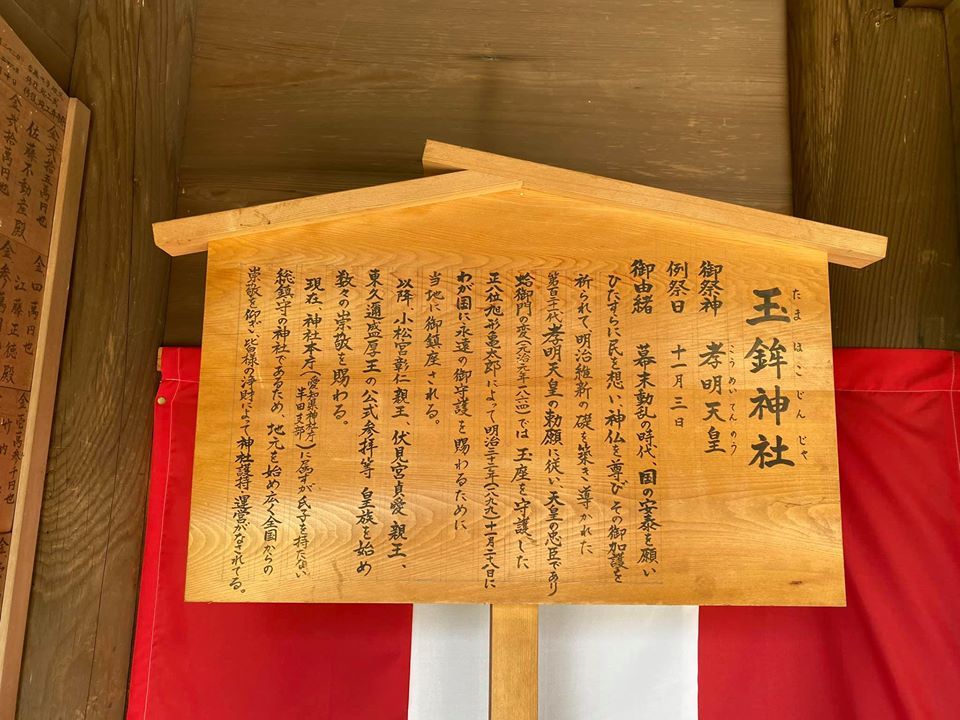 玉鉾神社
たまほこじんじゃ
御祭神 孝明天皇
こうめいてんのう
例祭日 十一月三日
御由緒 幕末動乱の時代、国の安泰を願い
ひたすらに民を想い、神仏を尊び、その御加護を
祈られて、明治維新の礎を築き導かれた
第百二十一代孝明天皇の勅願に従い、天皇の忠臣であり
蛤御門の変(元治元年一八六四)では玉座を守護した
正八位旭形亀太郎によって明治三十二年(一八九九)十一月二十八日に
わが国に永遠の御守護を賜わるために
当地に御鎮座される。
以降、小松宮彰仁親王、伏見宮貞愛親王、
東久邇盛厚王の公式参拝等 皇族を始め
数々の崇敬を賜わる。
現在、神社本庁(愛知県神社庁半田支部)に属すが氏子を持たない
総鎮守の神社であるため、地元を始め広く全国からの
崇敬を仰ぎ、皆様の浄財によって神社護持・運営がなされてる。
金弐拾五萬円也
佐藤不動産殿
金弐拾萬円也
金四萬円也
江藤正徳殿